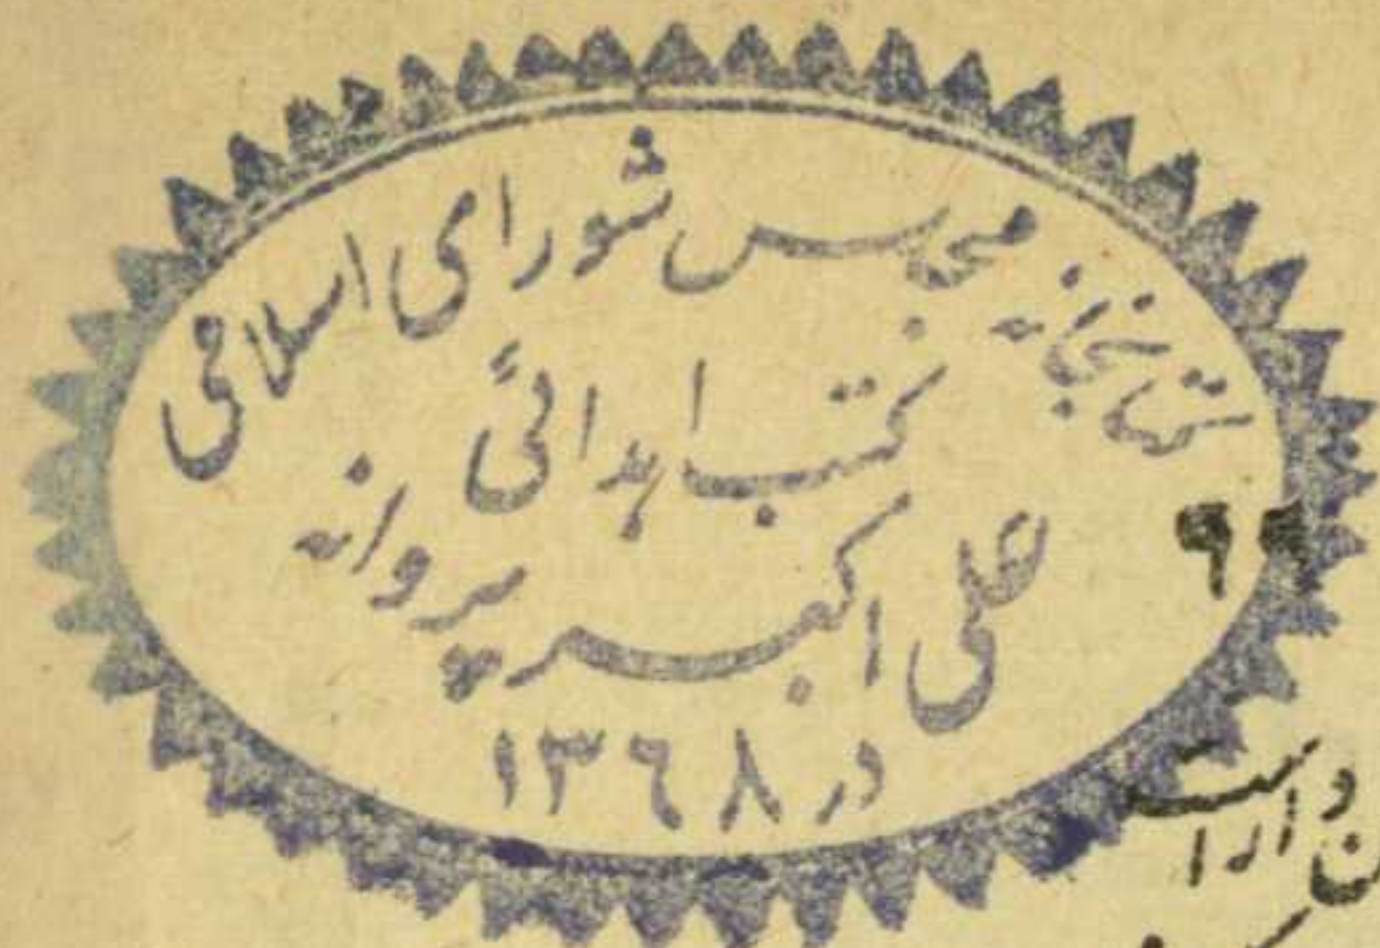 کتابخانه مجلس شورای اسلامی
کتب اهدائی
علی اکبر پروانه
در ۱۳۶۸